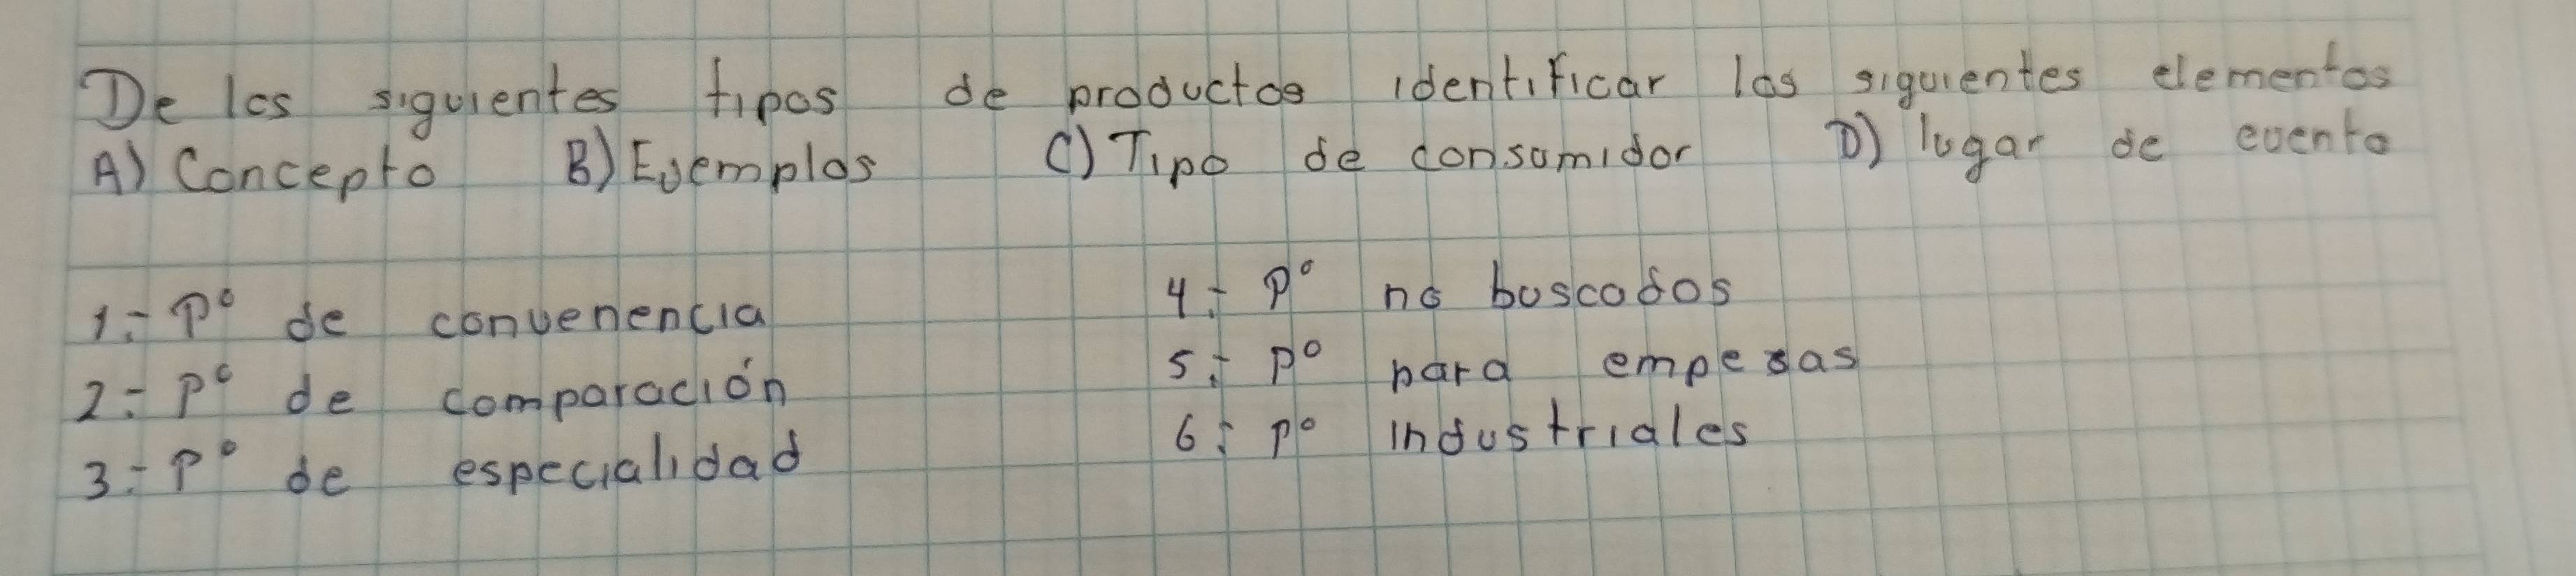 De los siguientes tipos de productos identificar los siguientes elementos
A) Concepto B) Ejemplos C) Tipo de consumidor D) lugar de evento
1.- P° de convenencia
2.- P° de comparación
3.- P° de especialidad
4.- P° no buscados
5.- P° para empesas
6.- P° industriales